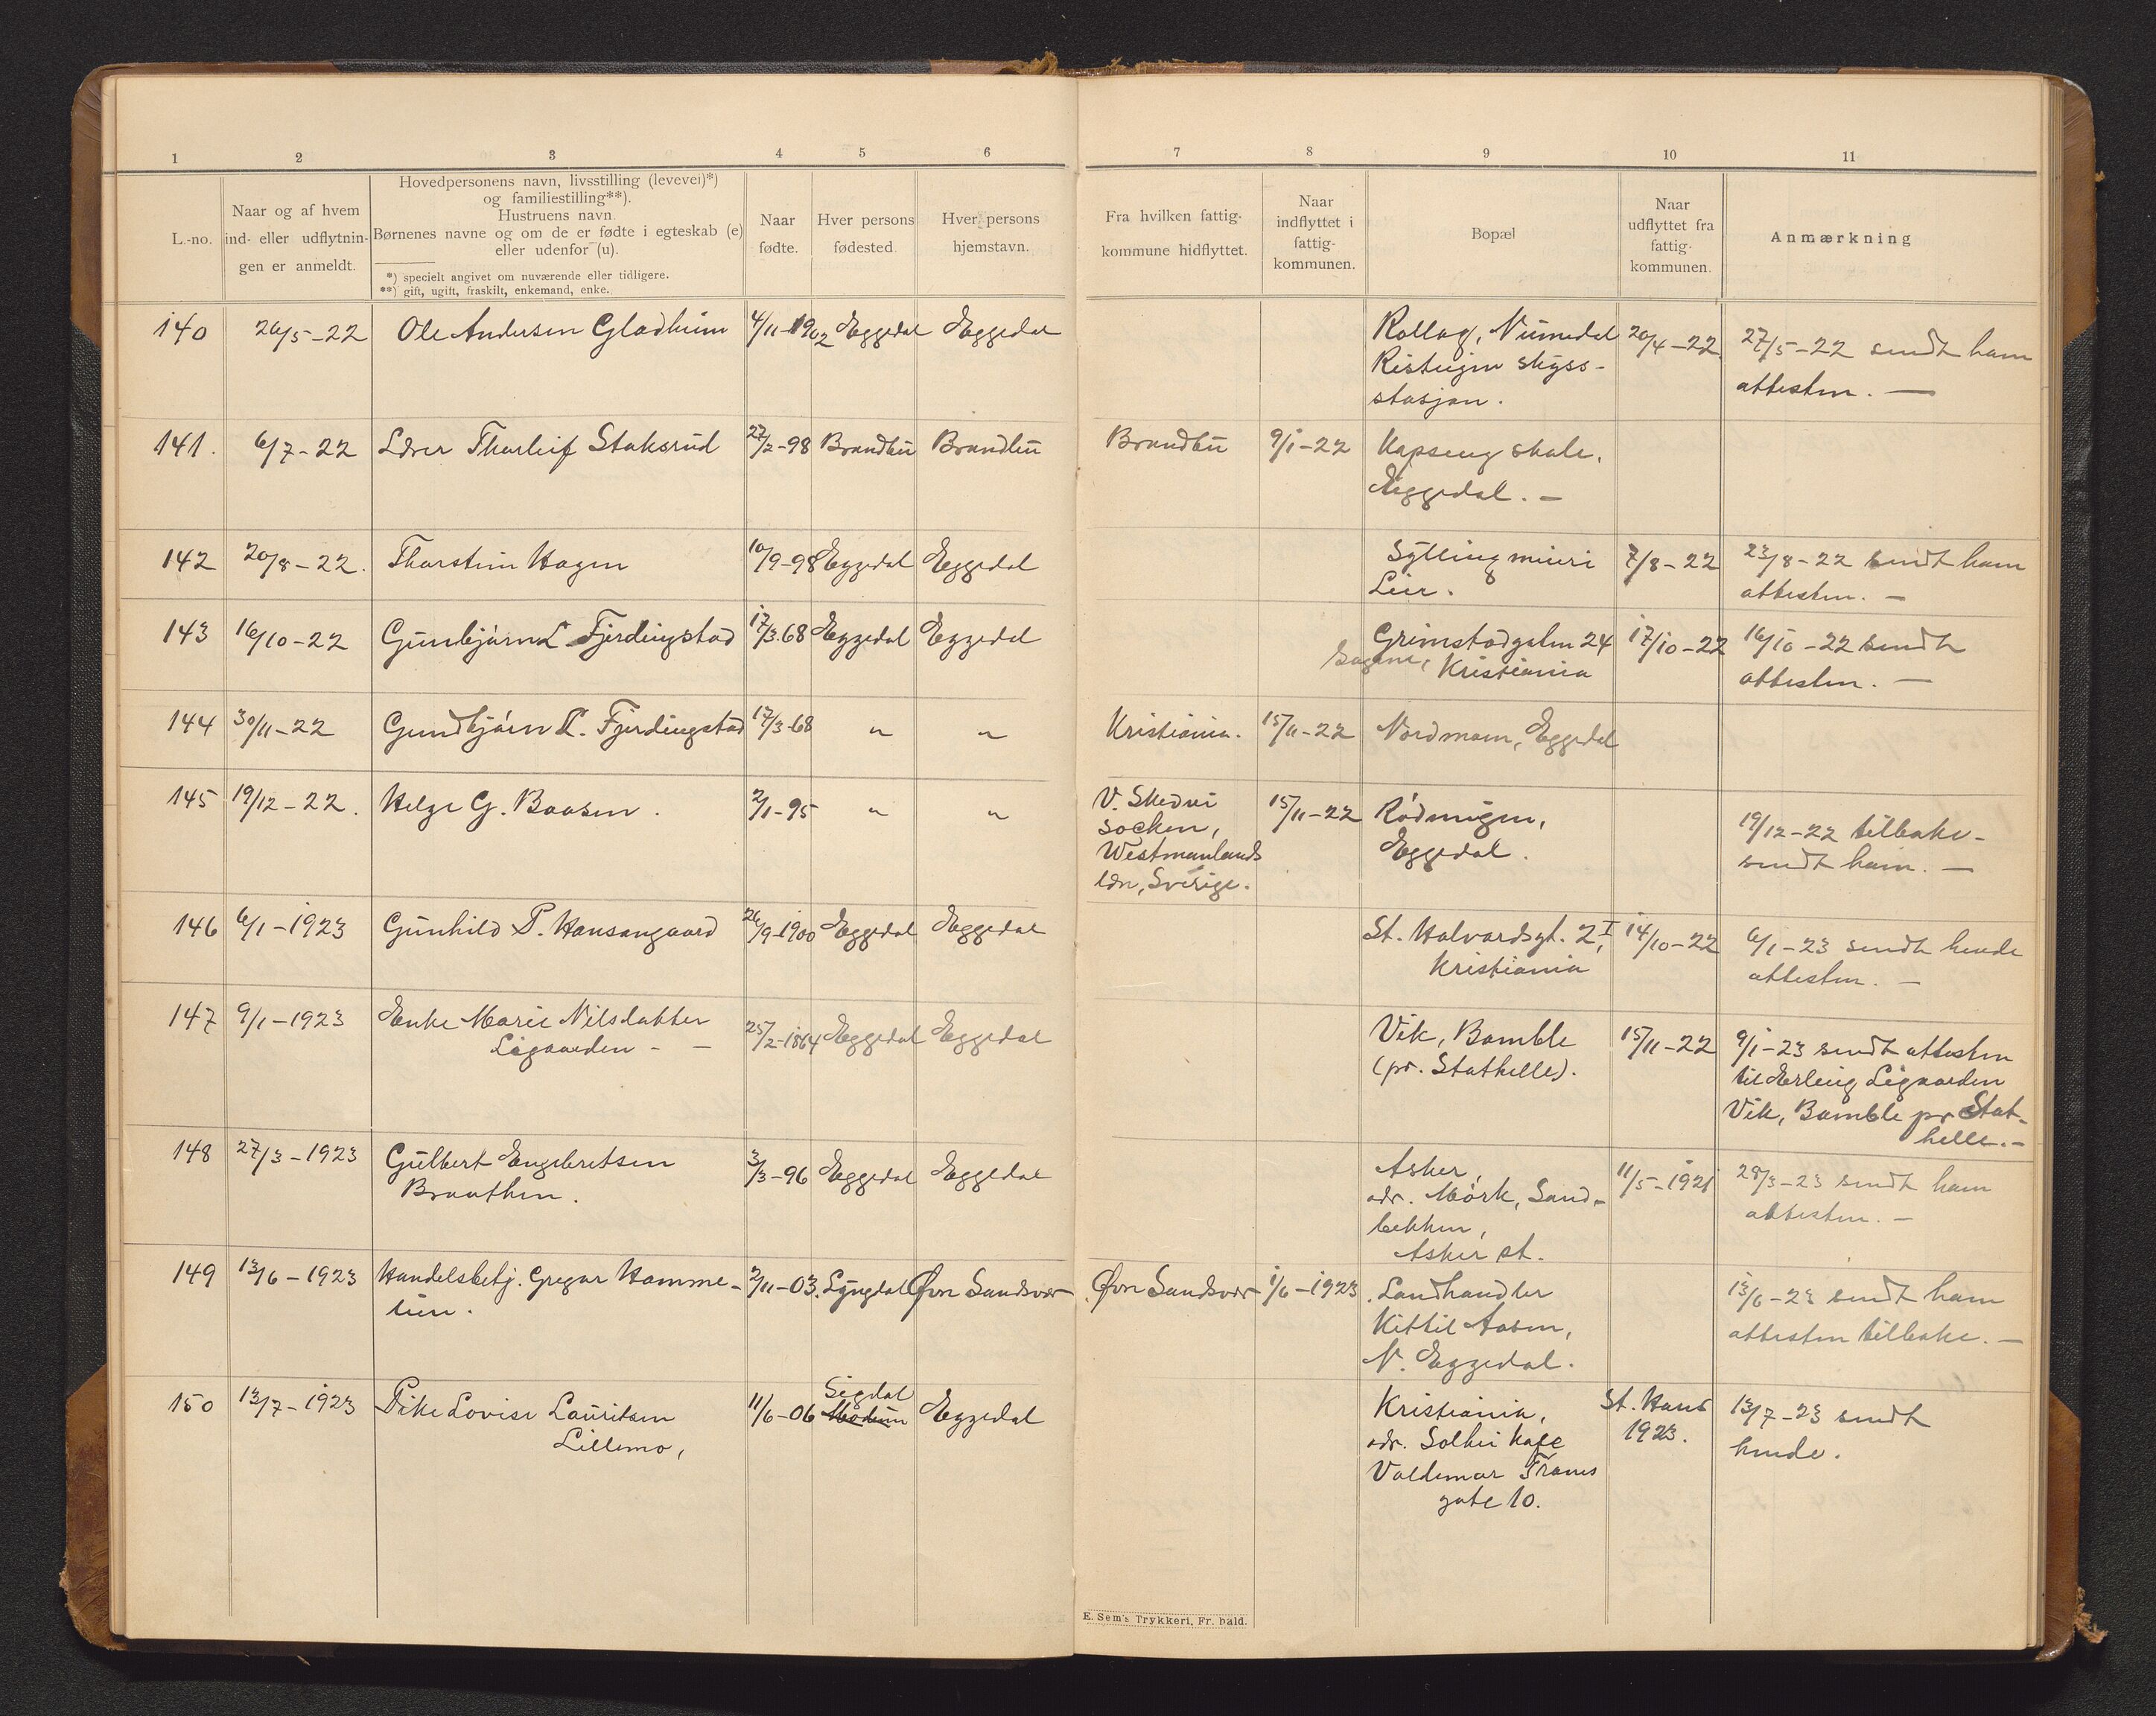 1 2 3 4 5 6 7 8 9 10 11
L.-no.
Naar og af hvem
ind- eller udflytnin-
gen er anmeldt.
Hovedpersonens navn, livsstilling (levevei)*)
og familiestilling**).
Hustruens navn
Børnenes navne og om de er fødte i egteskab (e)
eller udenfor (u).
*) specielt angivet om nuværende eller tidligere.
**) gift, ugift, fraskilt, enkemand, enke.
Naar
fødte.
Hver persons
fødested.
Hver persons
hjemstavn.
Fra hvilken fattig-
kommune hidflyttet.
Naar
indflyttet i
fattig-
kommunen.
Bopæl
Naar
udflyttet fra
fattig-
kommunen.
Anmærkning
140 26/5-22 Ole Andersen Gladheim 4/11-1902 Eggedal Eggedal
Rollag, Numedal
skyss-
stasjon.
20/4-22.
27/5-22 sendt ham
attesten. —
141. 6/7-22 Lærer Thorleif Staksrud 27/2-98 Brandbu Brandbu
Brandbu 9/1-22 Kopseng skole,
Eggedal. —
142 20/8-22. Thorstein Hagen 10/9-98 Eggedal Eggedal
Sylling meieri
Lier.
7/8-22
23/8-22 sendt ham
attesten. —
143 16/10-22 Gunbjørn L Fjerdingstad 17/3-68 Eggedal Eggedal
Grimstadgaten 24
Sagene, Kristiania
17/10-22
16/10-22 sendt
attesten. —
144 30/11-22 Gundbjørn L. Fjerdingstad 17/3-68 " "
Kristiania. 15/11-22 Nordmoen, Eggedal
145 19/12-22. Helge G. Baasen. 2/1-95 " "
V. Skedvi
socken,
Westmanlands
län, Sverige.
15/11-22
Rødningen,
Eggedal.
19/12-22 tilbake-
sendt ham. —
146 6/1-1923 Gunhild P. Hansengaard 26/9-1900 Eggedal Eggedal
St. Halvardsgt. 2 I,
Kristiania
14/10-22
6/1-23 sendt hende
attesten. —
147 9/1-1923 Enke Marie Nilsdatter
Ligaarden - —
25/2-1864 Eggedal Eggedal
Vik, Bamble
(pr. Stathelle).
15/11-22
9/1-23 sendt attesten
til Erling Ligaarden
Vik, Bamble pr Stat-
helle. —
148 27/3-1923 Gulbert Engebretsen
Braathen.
3/3-96 Eggedal Eggedal
Asker,
adr. Mørk, Sand-
bekken,
Asker st.
11/5-1921
28/3-23 sendt ham
attesten. —
149 13/6-1923 Handelsbetj. Gregar Hamme-
lien.
2/11-03. Lyngdal Øvre Sandsvær
Øvre Sandsvær 1/6-1923
Landhandler
Kittil Aasen,
N. Eggedal.
13/6-23 sendt ham
attesten tilbake. —
150 13/7-1923 Pike Lovise Lauritsen
Lillemo,
11/6-06
Sigdal
Modum
Eggedal
Kristiania,
adr. Solhei Kafe
Valdemar Tranes
gate 10.
St. Hans
1923.
13/7-23 sendt
hende.
E. Sem's Trykkeri, Fr. hald.